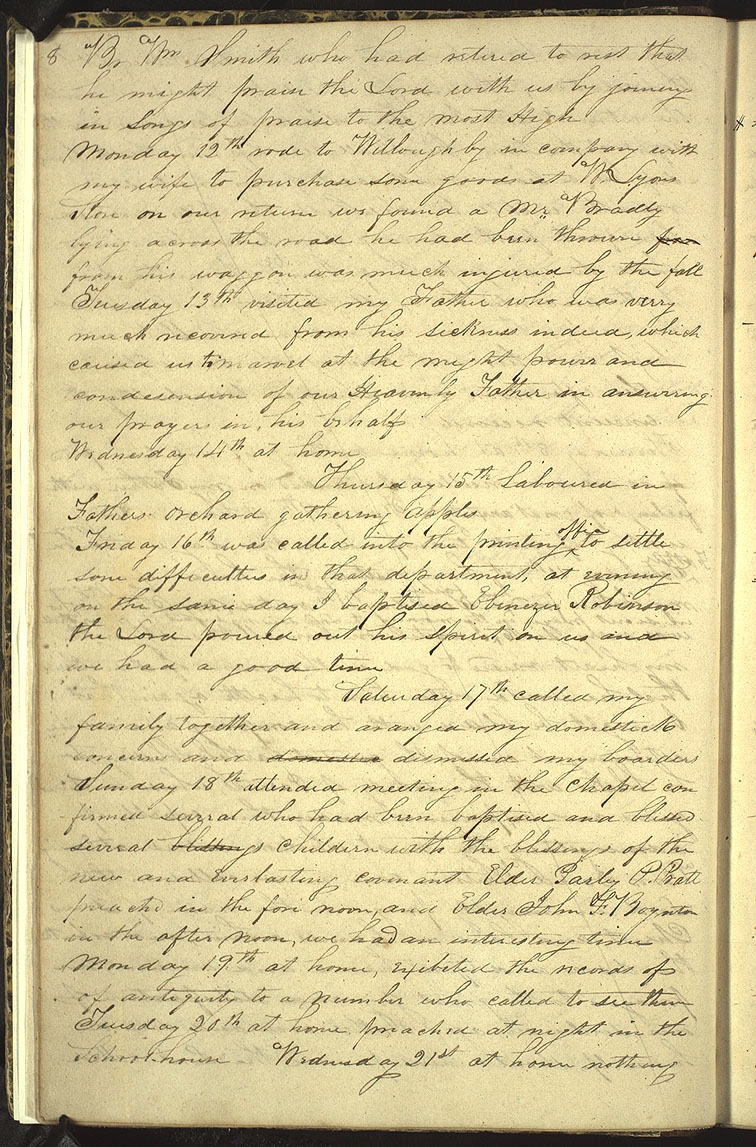 8 Br Wm Smith who had retired to rest that
he might praise the Lord with us by joining
in Songs of praise to the most High
Monday 12th rode to Willoughby in company with
my wife to purchase some goods at W. Lyons
Store on our return we found a Mr. Bradly
lying across the road he had been thrown from
from his waggon was much injured by the fall
Tuesday 13th visited my Father who was verry
much recovered from his sickness indeed, which
caused us to marvel at the might power and
condesension of our Heavenly Father in answering
our prayers in his behalf
Wednesday 14th at home
Thursday 15th Laboured in
Fathers orchard gathering apples
Friday 16th was called into the printing offic to settle
some difficulties in that department, at evening
on the same day I baptised Ebenezer Robinson
the Lord poured out his spirit on us and
we had a good time
Saturday 17th called my
family together and aranged my domestick
concerns and domestic dismissed my boarders
Sunday 18th attended meeting in the chapel con
firmed several who had been baptised and blessed
several blessings children with the blessings of the
new and everlasting covenant Elder Parley P. Pratt
preachd in the fore noon, and Elder John F. Boynton
in the after noon, we had an interesting time
Monday 19th at home, exibited the records of
of antiquity to a number who called to see them
Tuesday 20th at home preached at night in the
School-house Wednesday 21st at home nothing